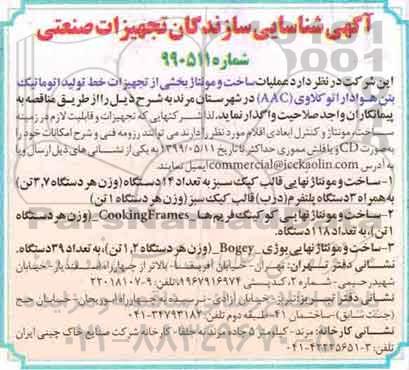 آگهی شناسایی سازندگان تجهیزات صنعتی
شماره ۹۹۰۵۱۱
این شرکت در نظر دارد عملیات ساخت و مونتاژ بخشی از تجهیزات خط تولید (اتوماتیک)
بتن هوادار اتوکلاوی (AAC) در شهرستان مرند به شرح ذیل را از طریق مناقصه به
پیمانکاران واجد صلاحیت واگذار نماید. لذا شرکتهایی که تجهیزات و قابلیت لازم در زمینه
ساخت، مونتاژ و کنترل ابعادی اقلام مورد نظر را دارند می توانند رزومه فنی و شرح امکانات خود را
به صورت CD و یا فلش مموری حداکثر تا تاریخ ۱۳۹۹/۰۵/۱۱ به یکی از نشانی های ذیل ارسال و یا
به آدرس commercial@icckaolin.com ایمیل نمایند.
۱- ساخت و مونتاژ نهایی قالب کیک سبز به تعداد ۱۴ دستگاه (وزن هر دستگاه ۳,۷ تن)
به همراه ۳ دستگاه پلتفرم (درب) قالب کیک سبز (وزن هر دستگاه ۱ تن)
۲- ساخت و مونتاژ نهایی کوکینگ فریم ها _CookingFrames (وزن هر دستگاه
۱تن)، به تعداد ۱۱۸ دستگاه
۳- ساخت و مونتاژ نهایی بوژی _Bogey_ (وزن هر دستگاه ۱,۲ تن)، به تعداد ۳۹ دستگاه.
نشانی دفتر تهران: تهران- خیابان آفریقا- بالاتر از چهارراه اسفندیار- خیابان
شهید رحیمی- شماره ۲، کدپستی ۱۹۶۷۹۱۶۹۷۴ تلفن: ۷-۲۲۰۱۸۱۰
نشانی دفتر تبریز: تبریز- خیابان آزادی- نرسیده به چهارراه لاله- خیابان پنج
- ساختمان ۴۱- طبقه دوم تلفن: ۳۴۷۹۳۱۸۳-۰۴۱
نشانی کارخانه: مرند- کیلومتر ۵ جاده مرند به جلفا- کارخانه شرکت صنایع خاک چینی ایران
تلفن: ۳-۴۲۲۳۵۶۵۱-۰۴۱
۰۲۱-۸۸۳۴۹۶۷۰